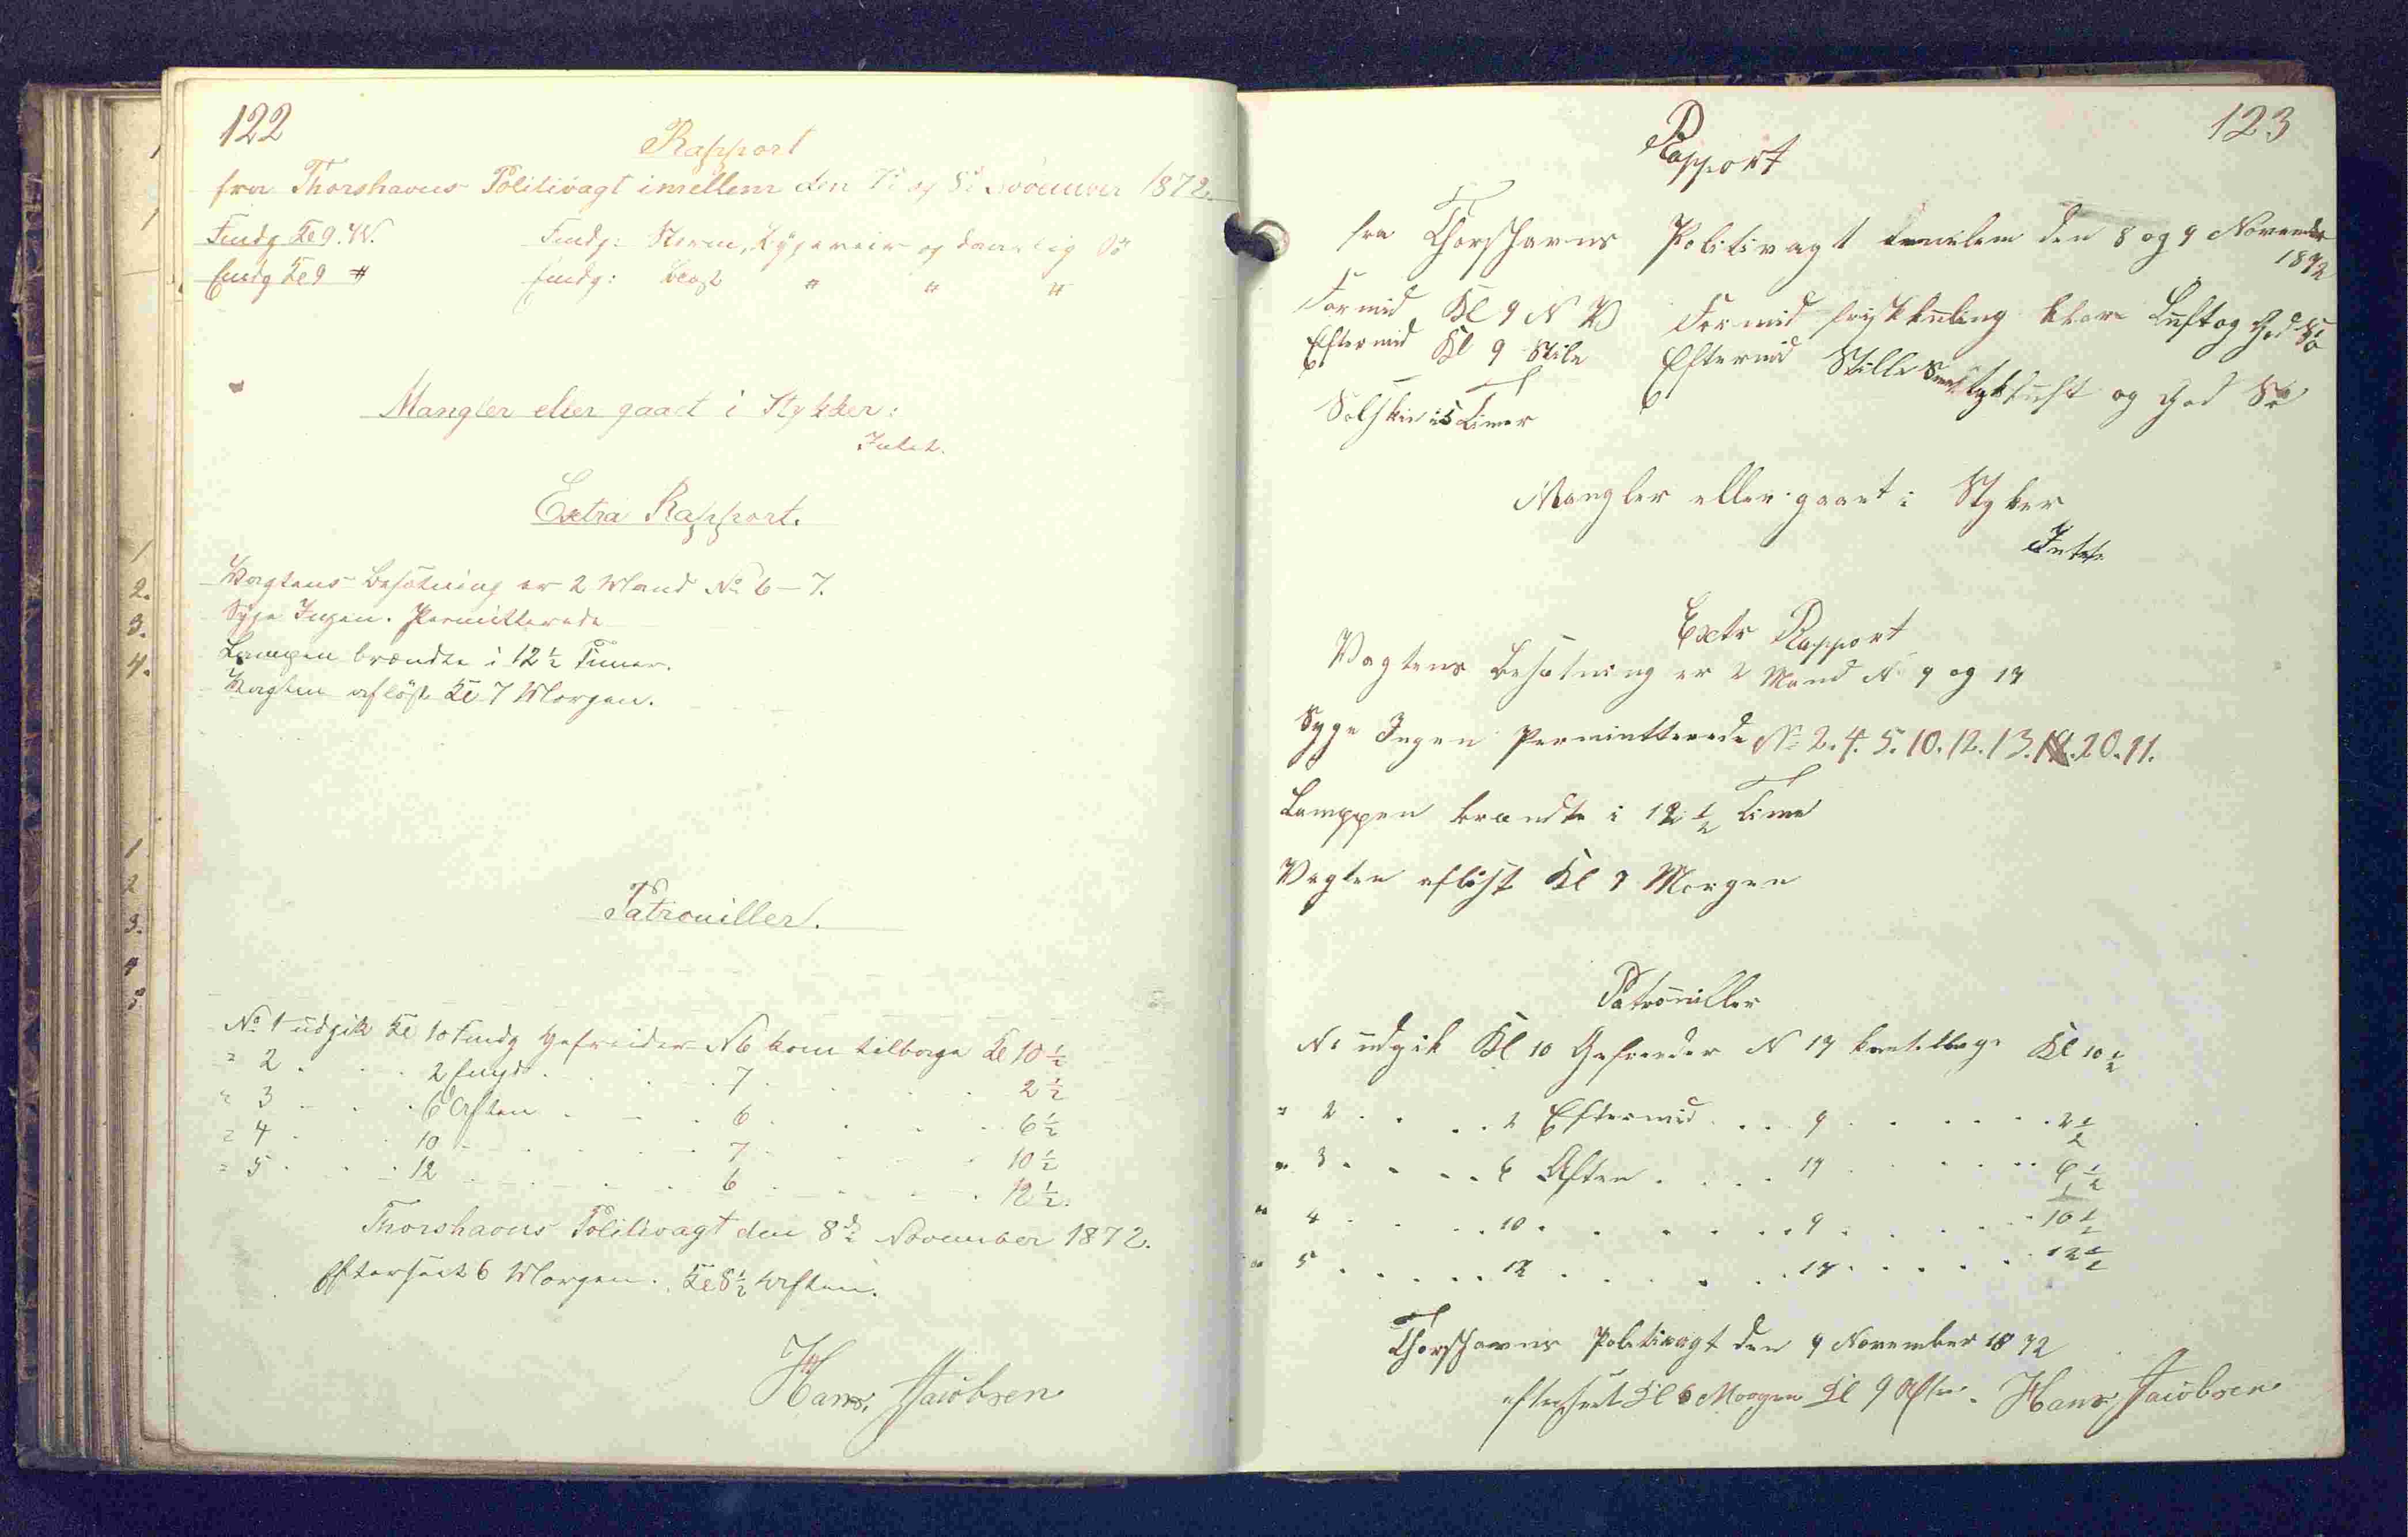 122
Rapport
fra Thorshavns Politivagt imellem den 7de og 8de November 1872.
Fmdg Kl 9. W. Fmdg: Storm, Bygeveir og daarlig Sö
Emdg Kl 9 " Emdg: " " "
Mangler eller gaaet i Stykker:
Intet.
Extra Rapport.
Vagtens Besætning er 2 Mand No 6 - 7.
Syge Ingen. Permitterede
Lampen brændte i 12 1/2 Timer.
Vagten aflöst Kl 7 Morgen.
Patrouiller.
No 1 udgik Kl 10 Fmdg Gefreider N 6 kom tilbage Kl 10 1/2
" 2 . . . 2 Emdg . . . 7 . . . 2 1/2
" 3 . . . 6 Aften . . . 6 . . . 6 1/2
" 4 . . . 10 . . . 7 . . . 10 1/2
" 5 . . . 12 . . . 6 . . . 12 1/2.
Thorshavns Politivagt den 8de November 1872.
Efterseet 6 Morgen. Kl 8 1/2 Aften.
Hans Jacobsen
123
Rapport
fra Thorshavns Politivagt imellem den 8 og 9 November
1872
Formid Kl 9 N V Formid friskkuling klar Luft og God Sö
Eftermid Kl 9 Stile Eftermid Stille Tykluft og God Sö
Solskin i 5 Timer
Mangler eller gaaet i Styker
Intet
Extr Rapport
Vagtens Besætning er 2 Mand N 9 og 17
Syge Ingen Permintterede No 2. 4. 5. 10. 12. 13. 20. 21.
Lamppen brændte i 12 1/2 Time
Vagten aflöst Kl 7 Morgen
Patrouiller
N 1 udgik Kl 10 Gefreeder N 17 kom tilbage Kl 10 1/2
" 2 . . . 2 Eftermid . . . 9 . . . 2 1/2
" 3 . . . 6 Aften . . . 17 . . . 6 1/2
" 4 . . . 10 . . . 9 . . . 10 1/2
" 5 . . . 12 . . . 17 . . . 12 1/2
Thorshavns Politivagt den 9 November 1872
efterseet Kl 6 Morgen Kl 9 Aften. Hans Jacobsen
1
2.
3.
4.
1
2
3.
4
5